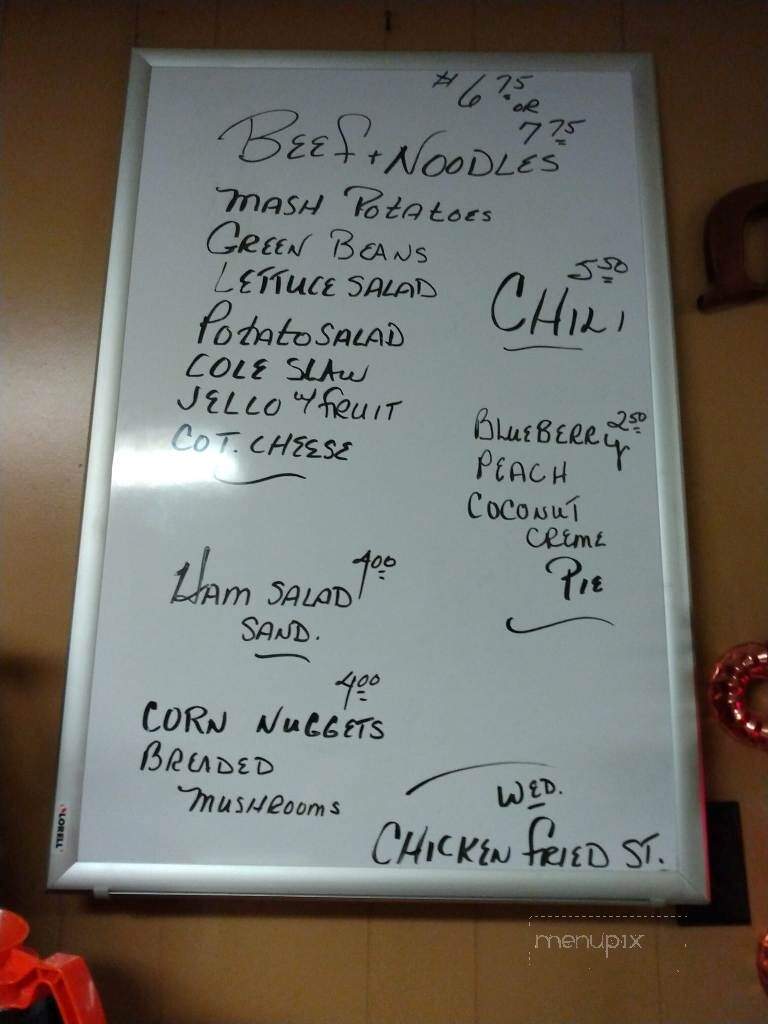 $6.75
OR
7 75
BEEF + NOODLES
MASH POTATOES
GREEN BEANS
LETTUCE SALAD
POTATO SALAD
COLE SLAW
JELLO W/ FRUIT
COT. CHEESE
5 50
CHILI
2 50
BLUEBERRY
PEACH
COCONUT
CREME
PIE
4 00
HAM SALAD
SAND.
4 00
CORN NUGGETS
BREADED
MUSHROOMS
WED.
CHICKEN FRIED ST.
LORELL
menupix